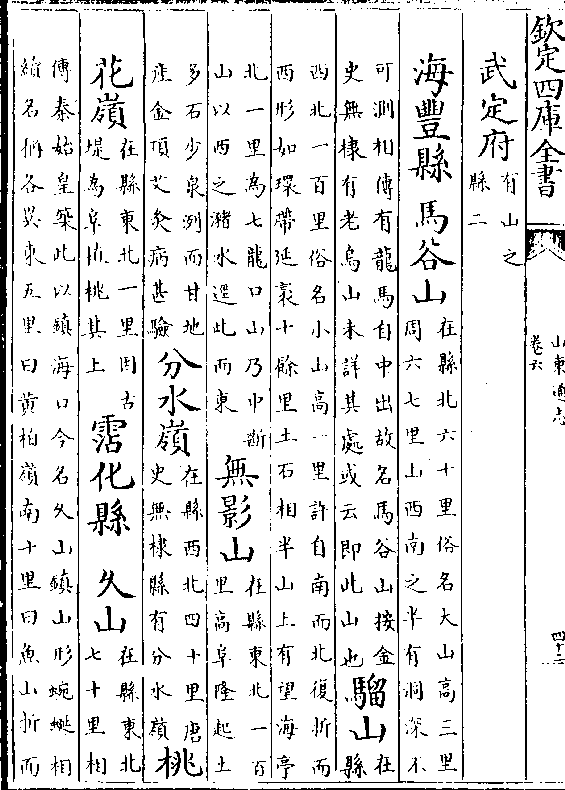 欽定四庫全書
山東通志
卷六
武定府有山之縣二
海豐縣 馬谷山在縣北六十里俗名大山高三里周六七里山西南之半有洞深不
可測相傳有龍馬自中出故名馬谷山按金史無棣有老烏山未詳其處或云即此山也 騮山在縣
西北一百里俗名小山高一里許自南而北復折而西形如環帶延袤十餘里土石相半山上有望海亭
北一里為七龍口山乃中斷山以西之瀦水逕此而東 無影山在縣東北一百里高阜隆起土
多石少泉冽而甘地產金頂艾灸病甚驗 分水嶺在縣西北四十里唐史無棣縣有分水嶺 桃
花嶺在縣東北一里因古堤為阜植桃其上 霑化縣 久山在縣東北七十里相
傳秦始皇築此以鎮海口今名久山鎮山形蜿蜒相續名稱各異東五里曰黄柏嶺南十里曰魚山折而